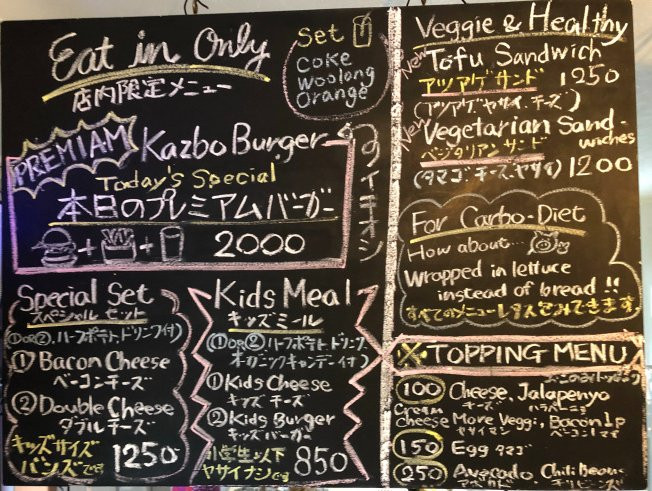 Eat in Only
店内限定メニュー
Set
COKE
Woolong
Orange
PREMIAM
Kazbo Burger
Today's Special
本日のプレミアムバーガー
+ +
2000
Special Set
スペシャル セット
(①or②、ハーフポテト、ドリンク付)
① Bacon Cheese
ベーコンチーズ
② Double Cheese
ダブル チーズ
キッズサイズ
バンズです
1250
Kids Meal
キッズ ミール
(①or②、ハーフポテト、ドリンク
オーガニックキャンディー付)
① Kids Cheese
キッズ チーズ
② Kids Burger
キッズ バーガー
小学生以下
ヤサイナシです
850
Veggie & Healthy
New
Tofu Sandwich
アツアゲ サンド 1250
(アツアゲ、ヤサイ、チーズ)
New
Vegetarian Sand-
wiches
ベジタリアン サンド
(タマゴ、チーズ、ヤサイ) 1200
For Carbo-Diet
How about...
Wrapped in lettuce
instead of bread !!
すべてのメニュー レタスでつつみできます
TOPPING MENU
100 Cheese, Jalapenyo
チーズ ハラペーニョ
Cream
cheese More Veggi, Bacon1p
ヤサイマシ ベーコン1マイ
150 Egg タマゴ
250 Avocado Chili Beans
アボカド チリビーンズ